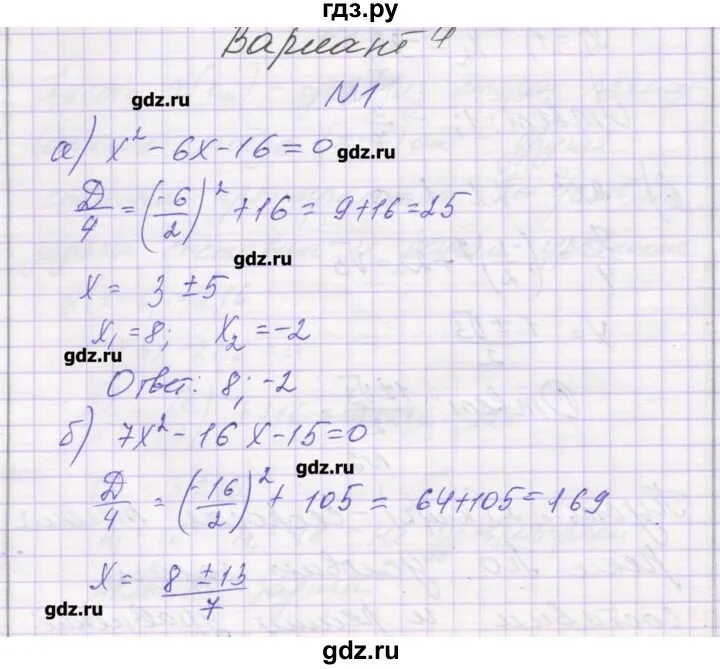 гдз.ру
Вариант 4
gdz.ru
N1
а) x² - 6x - 16 = 0 gdz.ru
Д/4 = (-6/2)² + 16 = 9 + 16 = 25
gdz.ru
x = 3 ± 5
x₁ = 8; x₂ = -2
gdz.ru
Ответ: 8; -2
б) 7x² - 16x - 15 = 0
gdz.ru
Д/4 = (-16/2)² + 105 = 64 + 105 = 169
x = (8 ± 13)/7
gdz.ru
gdz.ru